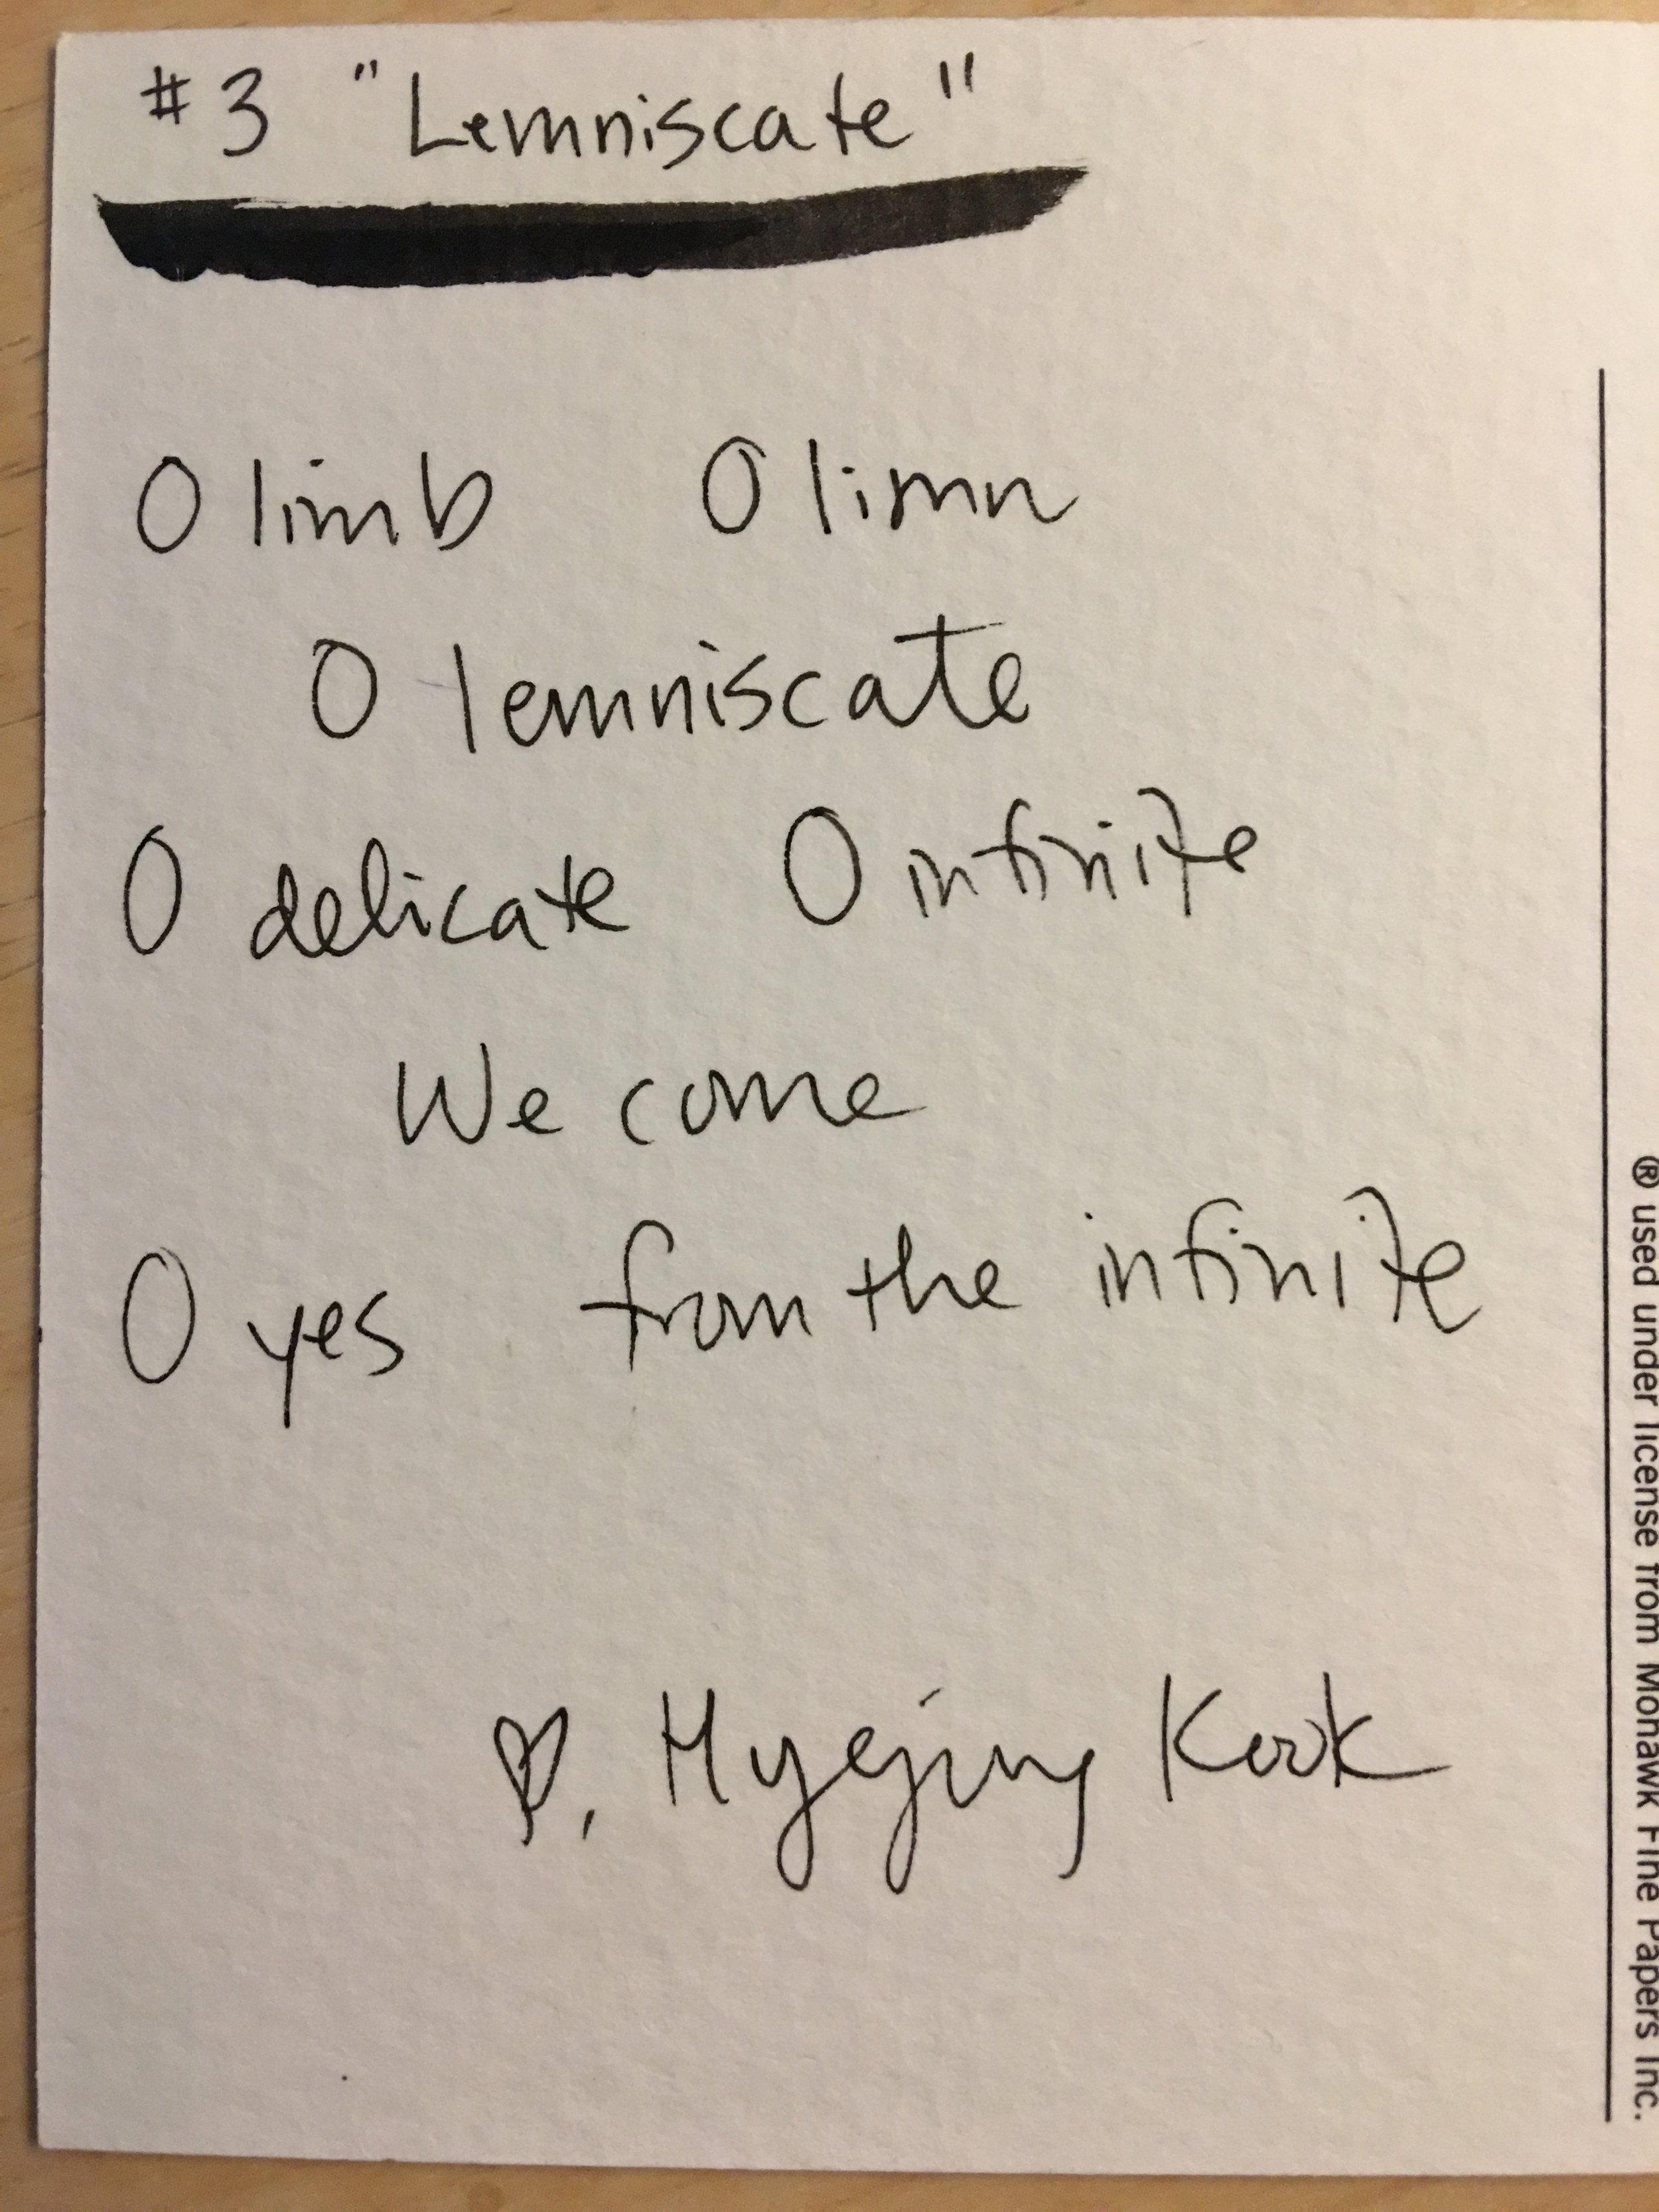 #3 "Lemniscate"
O limb O limn
O lemniscate
O delicate O infinite
We come
O yes from the infinite
♡, Hyejung Kook
® used under license from Mohawk Fine Papers Inc.